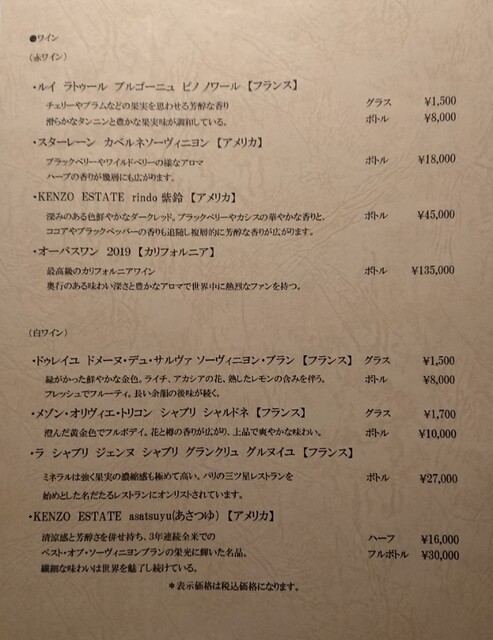 ●ワイン
(赤ワイン)
・ルイ ラトゥール ブルゴーニュ ピノ ノワール 【フランス】
チェリーやプラムなどの果実を思わせる芳醇な香り グラス ¥1,500
滑らかなタンニンと豊かな果実味が調和している。 ボトル ¥8,000
・スターレーン カベルネソーヴィニヨン 【アメリカ】
ブラックベリーやワイルドベリーの様なアロマ ボトル ¥18,000
ハーブの香りが幾層にも広がります。
・KENZO ESTATE rindo 紫鈴 【アメリカ】
深みのある色鮮やかなダークレッド。ブラックベリーやカシスの華やかな香りと、 ボトル ¥45,000
ココアやブラックペッパーの香りも追随し複層的に芳醇な香りが広がります。
・オーパスワン 2019 【カリフォルニア】
最高級のカリフォルニアワイン ボトル ¥135,000
奥行のある味わい深さと豊かなアロマで世界中に熱烈なファンを持つ。
(白ワイン)
・ドゥレイユ ドメーヌ・デュ・サルヴァ ソーヴィニヨン・ブラン 【フランス】 グラス ¥1,500
緑がかった鮮やかな金色。ライチ、アカシアの花、熟したレモンの含みを伴う。 ボトル ¥8,000
フレッシュでフルーティ。長い余韻の後味が続く。
・メゾン・オリヴィエ・トリコン シャブリ シャルドネ 【フランス】 グラス ¥1,700
澄んだ黄金色でフルボディ。花と樽の香りが広がり、上品で爽やかな味わい。 ボトル ¥10,000
・ラ シャブリ ジェンヌ シャブリ グランクリュ グルヌイユ 【フランス】
ミネラルは強く果実の濃縮感も極めて高い。パリの三ツ星レストランを ボトル ¥27,000
始めとした名だたるレストランにオンリストされています。
・KENZO ESTATE asatsuyu(あさつゆ) 【アメリカ】
清涼感と芳醇さを併せ持ち、3年連続全米での ハーフ ¥16,000
ベスト・オブ・ソーヴィニヨンブランの栄光に輝いた名品。 フルボトル ¥30,000
繊細な味わいは世界を魅了し続けている。
＊表示価格は税込価格になります。